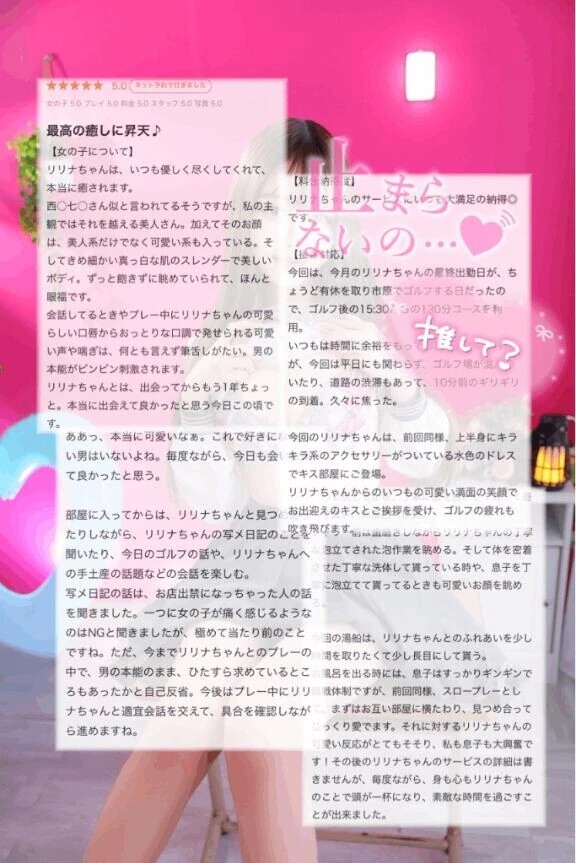 ★★★★★ 5.0 ネット予約で行きました
女の子 5.0 プレイ 5.0 料金 5.0 スタッフ 5.0 写真 5.0
最高の癒しに昇天♪
【女の子について】
リリナちゃんは、いつも優しく尽くしてくれて、
本当に癒されます。
西○七○さん似と言われてるそうですが、私の主
観ではそれを越える美人さん。加えてそのお顔
は、美人系だけでなく可愛い系も入っている。そ
してきめ細かい真っ白な肌のスレンダーで美しい
ボディ。ずっと飽きずに眺めていられて、ほんと
眼福です。
会話してるときやプレー中にリリナちゃんの可愛
らしい口唇からおっとりな口調で発せられる可愛
い声や喘ぎは、何とも言えず筆舌しがたい。男の
本能がビンビン刺激されます。
リリナちゃんとは、出会ってからもう1年ちょっ
と。本当に出会えて良かったと思う今日この頃で
す。
ああっ、本当に可愛いなぁ。これで好きにな
い男はいないよね。毎度ながら、今日も会い
て良かったと思う。
部屋に入ってからは、リリナちゃんと見つめ
たりしながら、リリナちゃんの写メ日記のことを
聞いたり、今日のゴルフの話や、リリナちゃんへ
の手土産の話題などの会話を楽しむ。
写メ日記の話は、お店出禁になっちゃった人の話
を聞きました。一つに女の子が痛く感じるような
のはNGと聞きましたが、極めて当たり前のこと
ですね。ただ、今までリリナちゃんとのプレーの
中で、男の本能のまま、ひたすら求めているとこ
ろもあったかと自己反省。今後はプレー中にリリ
ナちゃんと適宜会話を交えて、具合を確認しなが
ら進めますね。
止まら
ないの…
推して?
【料金納得度】
リリナちゃんのサービスにいつも大満足の納得◎
です。
対応】
今回は、今月のリリナちゃんの最終出勤日が、ち
ょうど有休を取り市原でゴルフする日だったの
で、ゴルフ後の15:30からの130分コースを利
用。
いつもは時間に余裕をもっ
が、今回は平日にも関わらず、ゴルフ場が混
いたり、道路の渋滞もあって、10分前のギリギリ
の到着。久々に焦った。
今回のリリナちゃんは、前回同様、上半身にキラ
キラ系のアクセサリーがついている水色のドレス
でキス部屋にご登場。
リリナちゃんからのいつもの可愛い満面の笑顔で
お出迎えのキスとご挨拶を受け、ゴルフの疲れも
吹き飛びます。
前は歯磨きしながらリリナちゃんの丁寧
な泡立てされた泡作業を眺める。そして体を密着
させた丁寧な洗体して貰っている時や、息子を丁
寧に泡立てて貰ってるときも可愛いお顔を眺め
る。
今回の湯船は、リリナちゃんとのふれあいを少し
時間を取りたくて少し長目にして貰う。
お風呂を出る時には、息子はすっかりギンギンで
戦体制ですが、前回同様、スロープレーとし
て、まずはお互い部屋に横たわり、見つめ合って
じっくり愛でます。それに対するリリナちゃんの
可愛い反応がとてもそそり、私も息子も大興奮で
す！その後のリリナちゃんのサービスの詳細は書
きませんが、毎度ながら、身も心もリリナちゃん
のことで頭が一杯になり、素敵な時間を過ごすこ
とが出来ました。